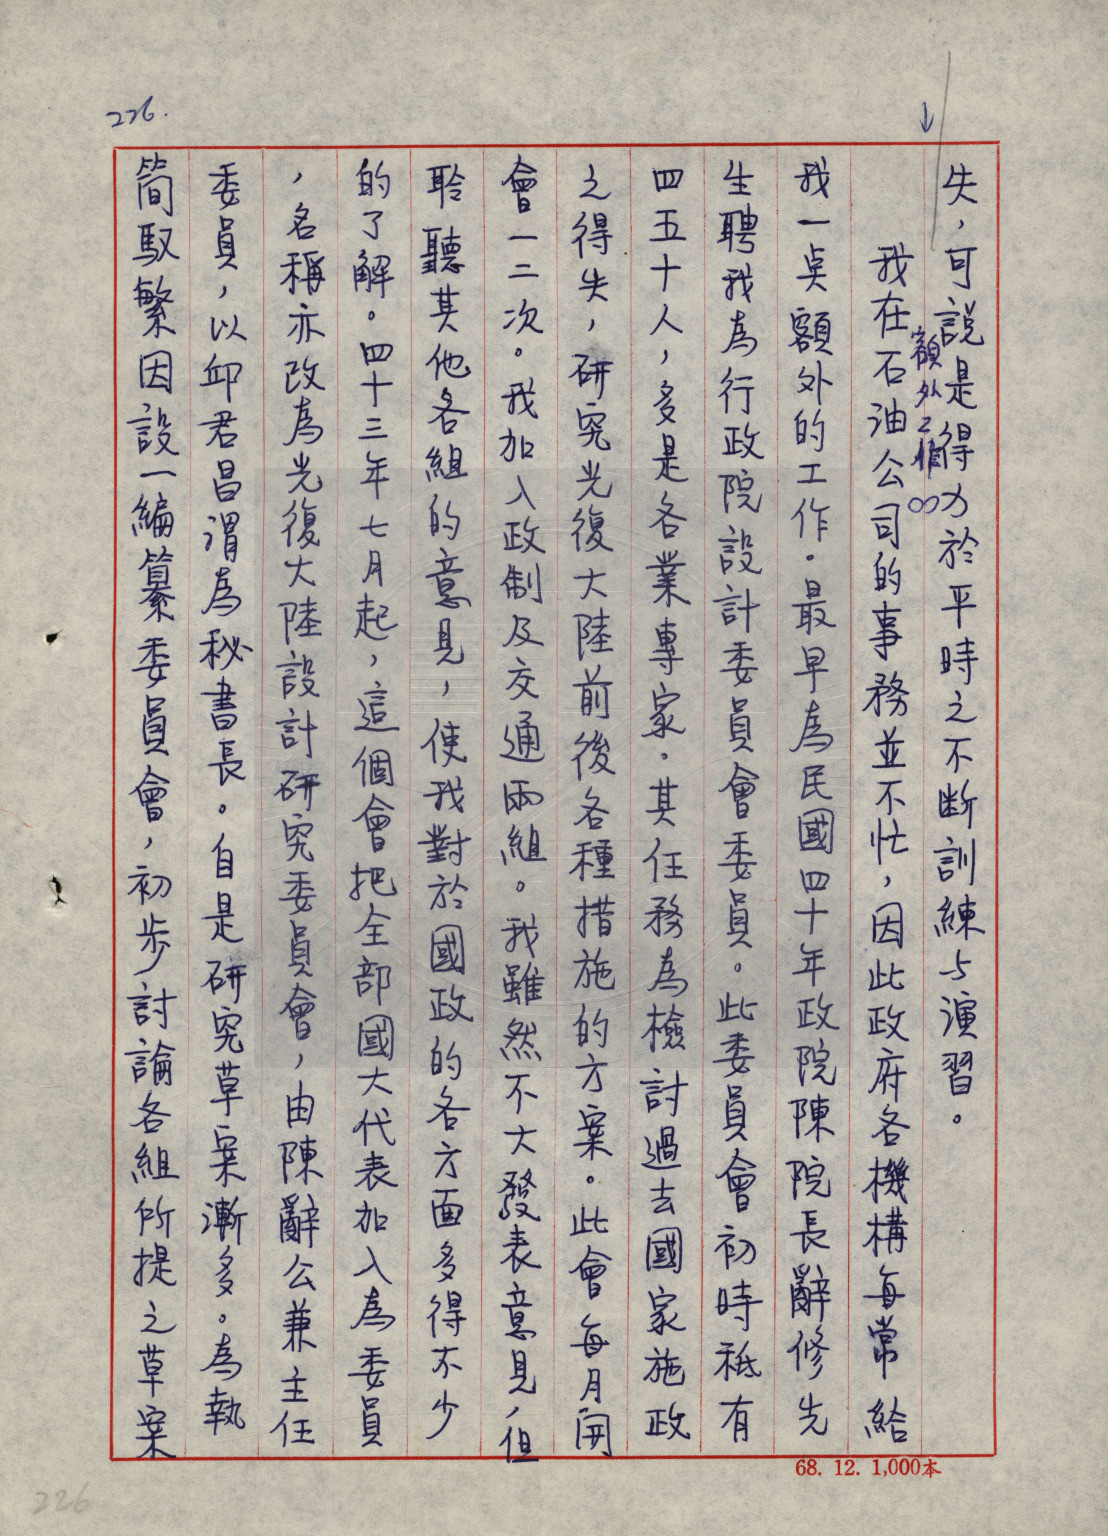 226.
失，可說是得力於平時之不斷訓練与演習。
額外工作
我在石油公司的事務並不忙，因此政府各機構每常給
我一点額外的工作．最早為民國四十年政院陳院長辭修先
生聘我為行政院設計委員會委員。此委員會初時祗有
四五十人，多是各業專家．其任務為檢討過去國家施政
之得失，研究光復大陸前後各種措施的方案。此會每月開
會一二次。我加入政制及交通兩組。我雖然不大發表意見，但
聆聽其他各組的意見，使我對於國政的各方面多得不少
的了解。四十三年七月起，這個會把全部國大代表加入為委員
，名稱亦改為光復大陸設計研究委員會，由陳辭公兼主任
委員，以邱君昌渭為秘書長。自是研究草案漸多。為執
簡馭繁因設一編纂委員會，初步討論各組所提之草案
68. 12. 1,000本
226